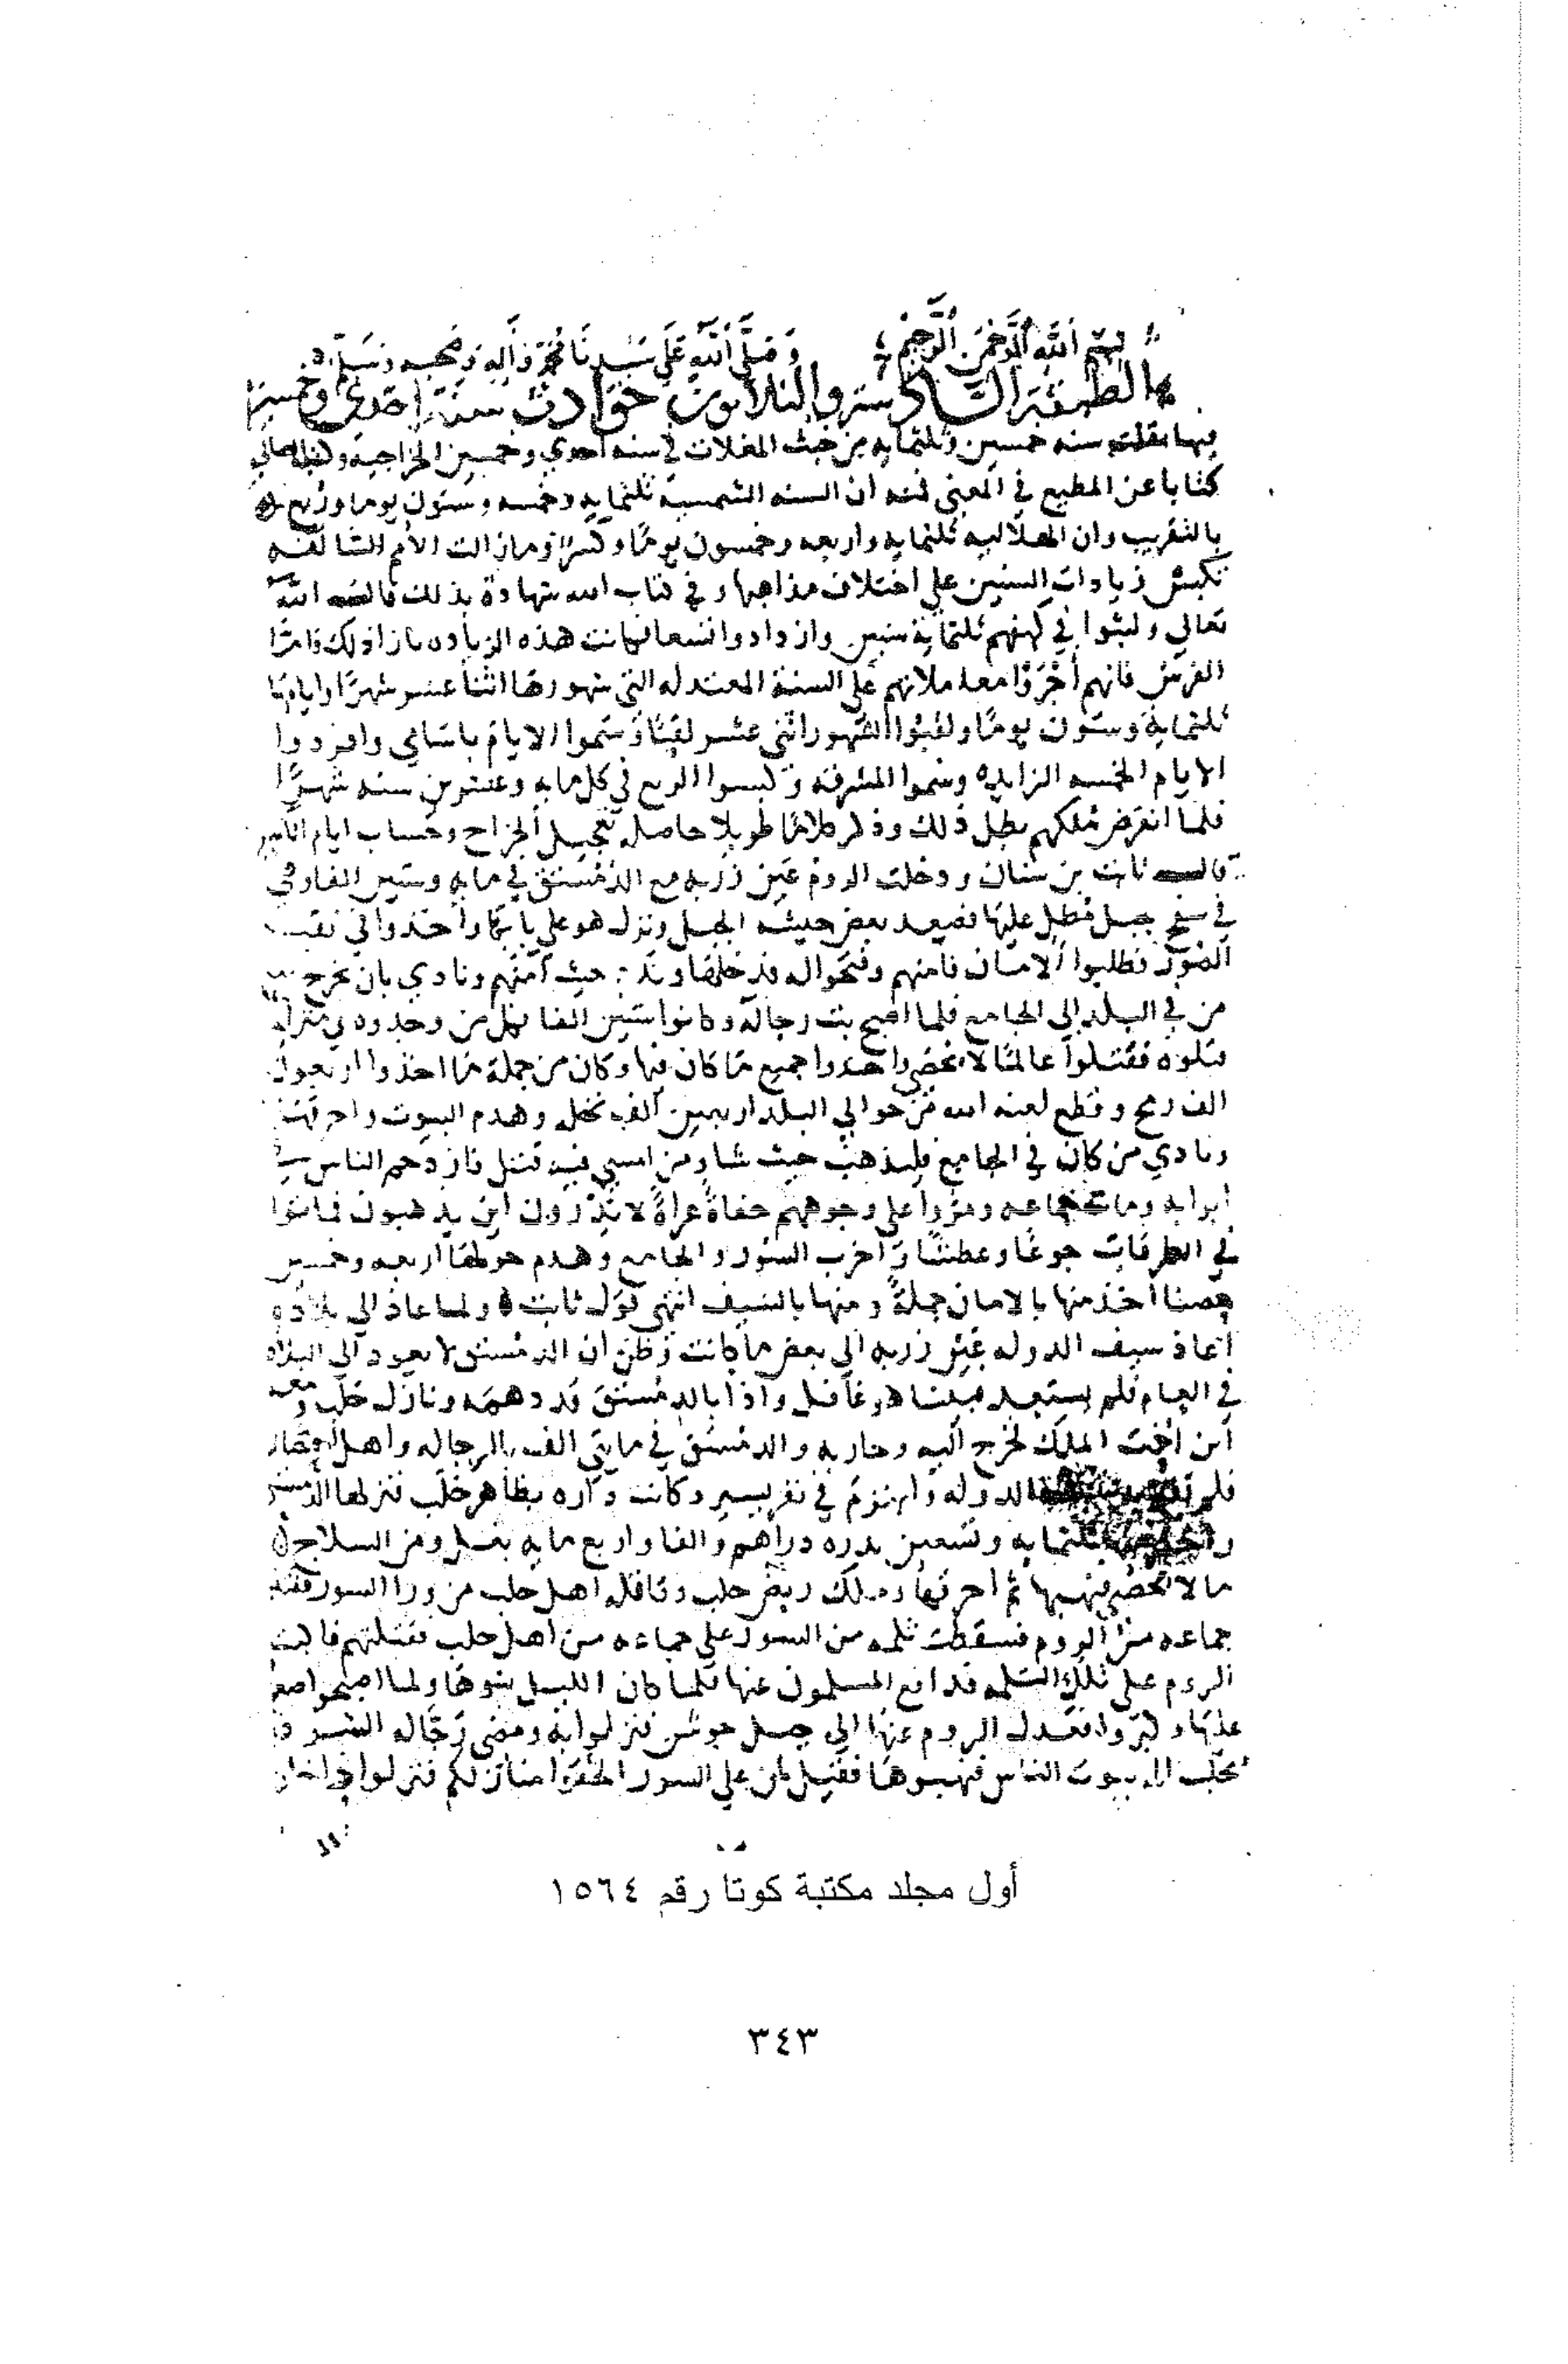 بسم الله الرحمن الرحيم وصلى الله على سيدنا محمد وآله وصحبه وسلم
الطبقة السادسة والثلاثون حوادث سنة احدى وخمسين
فيها نقلت سنه خمسين وثلثمايه من حيث المغلات الى سنه احدي وخمسين الخراجيه وكتب الصابي
كتابا عن المطيع في المعنى فمنه ان السنه الشمسية ثلثمايه وخمسه وستون يوما وربع
بالتقريب وان الهلاليه ثلثمايه واربعه وخمسون يومًا وكسرًا وما زالت الأمم السالفه
تكبس زيادات السنين على اختلاف مذاهبها وفي كتاب الله شهادة بذلك قال الله
تعالي ولبثوا في كهفهم ثلثماية سنين وازدادوا تسعا فكانت هذه الزياده بازا ذلك فامّا
الفرس فانهم أجْرَوْا معاملاتهم على السنة المعتدله التي شهورها اثنا عشر شهرًا وايامها
ثلثماية وستون يومًا ولقبوا الشهور اثنى عشر لقبًا وسموا الايام باسامي وافردوا
الايام الخمسه الزايده وسموا المسرقه وكبسوا الربع في كل مايه وعشرين سنه شهرًا
فلما انقرض مُلكهم بطل ذلك وذكر كلامًا طويلا حاصله تعجيل الخراج وحساب ايام
قال ثابت بن سنان ودخلت الروم عين زربه مع الدمستق في مايه وستين الفا وهي
في سفح جبل مُطل عليها فصعد بعض جيشه الجبل ونزل هو على بابها واخذوا في نقب
السور فطلبوا الامان فامنهم وفتحوا له فدخلها وندم حيث أمّنهم ونادي بان يخرج
من في البلد الى الجامع فلما اصبح بث رجاله وكانوا ستين الفا فكل من وجدوه في منزله
قتلوه فقتلوا عالمًا لا يحصى واخذوا جميع ما كان فيها وكان من جملة ما اخذوا اربعون
الف رمح وقطع لعنه الله من حوالي البلد اربعين الف نخله وهدم البيوت واحرقها
ونادي من كان في الجامع فليذهب حيث شا ومن امسي فيه قتل فازدحم الناس في
ابوابه ومات جماعه ومرّوا على وجوههم حفاةً عراةً لا يدرون اين يذهبون فماتوا
في الطرقات جوعًا وعطشًا وأخرب السور والجامع وهدم حولها اربعه وخمسين
حصنا اخذ منها بالامان جملةً ومنها بالسيف انتهى قول ثابت ولما عاد الى بلاده
اعاد سيف الدوله عين زربه الى بعض ما كانت وظن ان الدمستق لا يعود الى البلاد
في العام فلم يستعد فبينا هو غافل واذا بالدمستق قد دهمه ونازل حلب ومعه
ابن اخت الملك فخرج اليه وحاربه والدمستق في مايتي الف بالرجاله واهل الحصار
فلم الدوله وانهزم في نفر يسير وكانت داره بظاهر حلب فنزلها الدمستق
ثلثمايه وتسعين بدره دراهم والفا واربع مايه بغل ومن السلاح
ما لا يحصى فنهبها ثم احرقها وملك ربض حلب وقاتله اهل حلب من ورا السور فقتل
جماعه من الروم فسقطت ثلمه من السور على جماعه من اهل حلب فقتلتهم فاكبت
الروم على تلك الثلمه فدافع المسلمون عنها فلما كان الليل بنوها ولما اصبحوا صعدوا
عليها وكبّروا فعدل الروم عنها الى جبل جوشن فنزلوا به ومضى رجّاله الشرط
بحلب الى بيوت الناس فنهبوها فقيل لمن علي السور الحقوا منازلكم فنزلوا
أول مجلد مكتبة كوتا رقم ١٥٦٤
٣٤٣